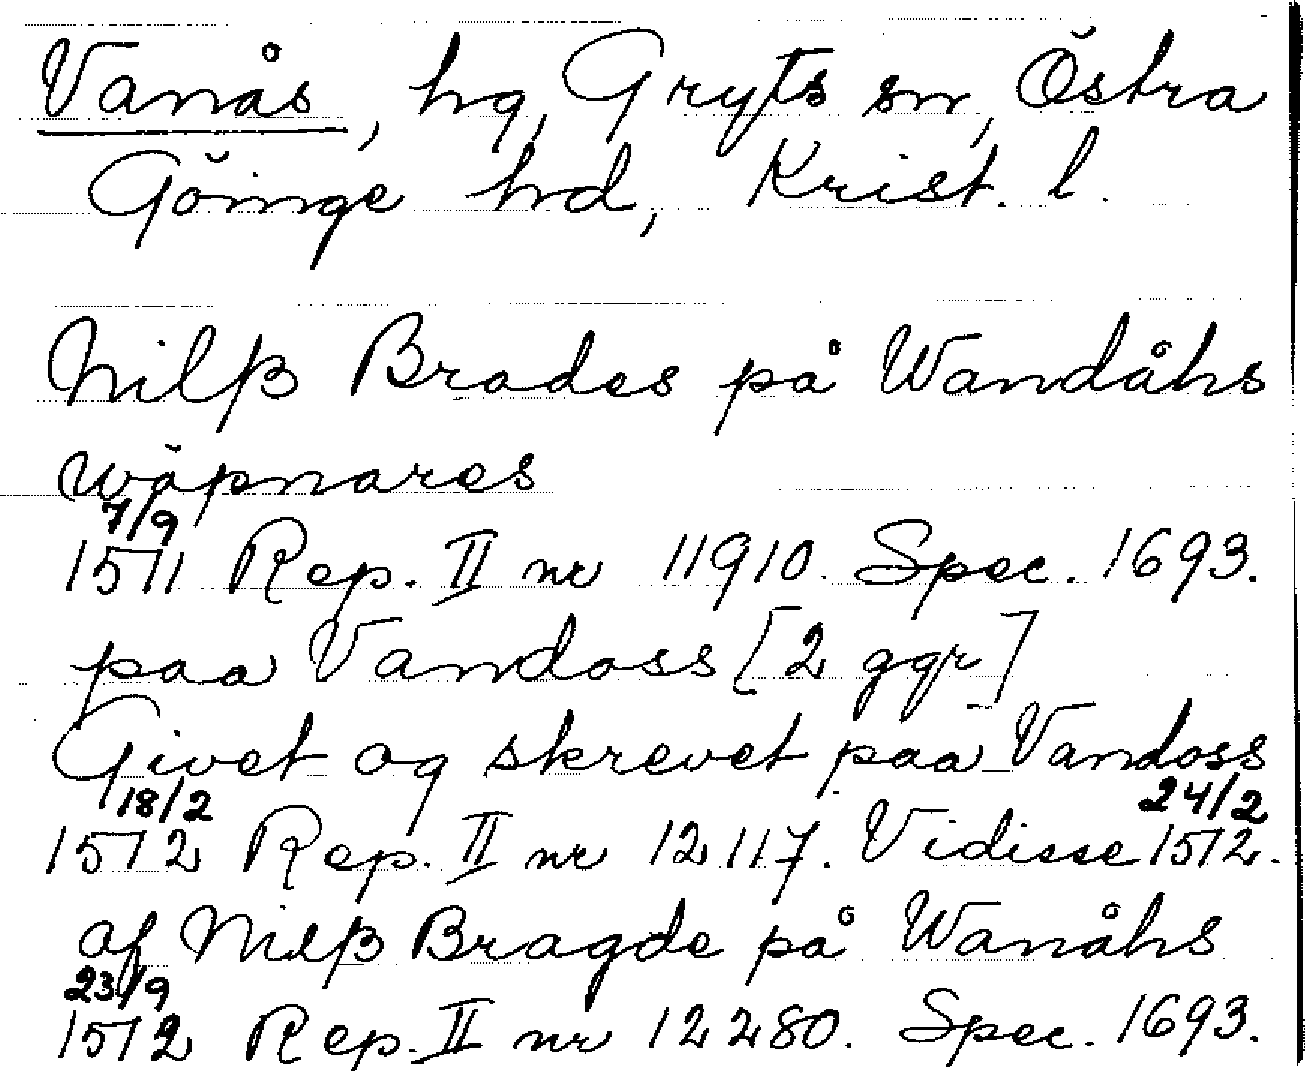 Vanås, hg, Gryts sn, Östra
Göinge hd, Krist. l.
Nilß Brades på Wandåhs
wäpnares
7/9
1511 Rep. II nr 11910. Spec. 1693.
paa Vandoss [2 ggr]
Givet og skrevet paa Vandoss
18/2 24/2
1512 Rep. II nr 12117. Vidisse 1512.
af Nilß Bragde på Wanåhs
23/9
1512 Rep. II nr 12280. Spec. 1693.